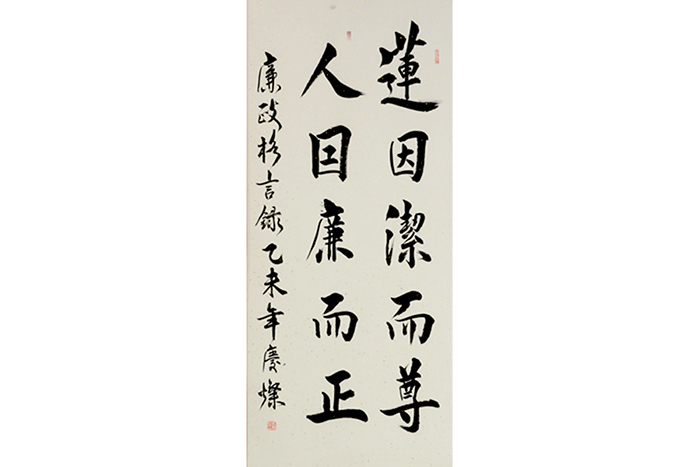 蓮因潔而尊
人因廉而正
廉政格言錄乙未年慶燦